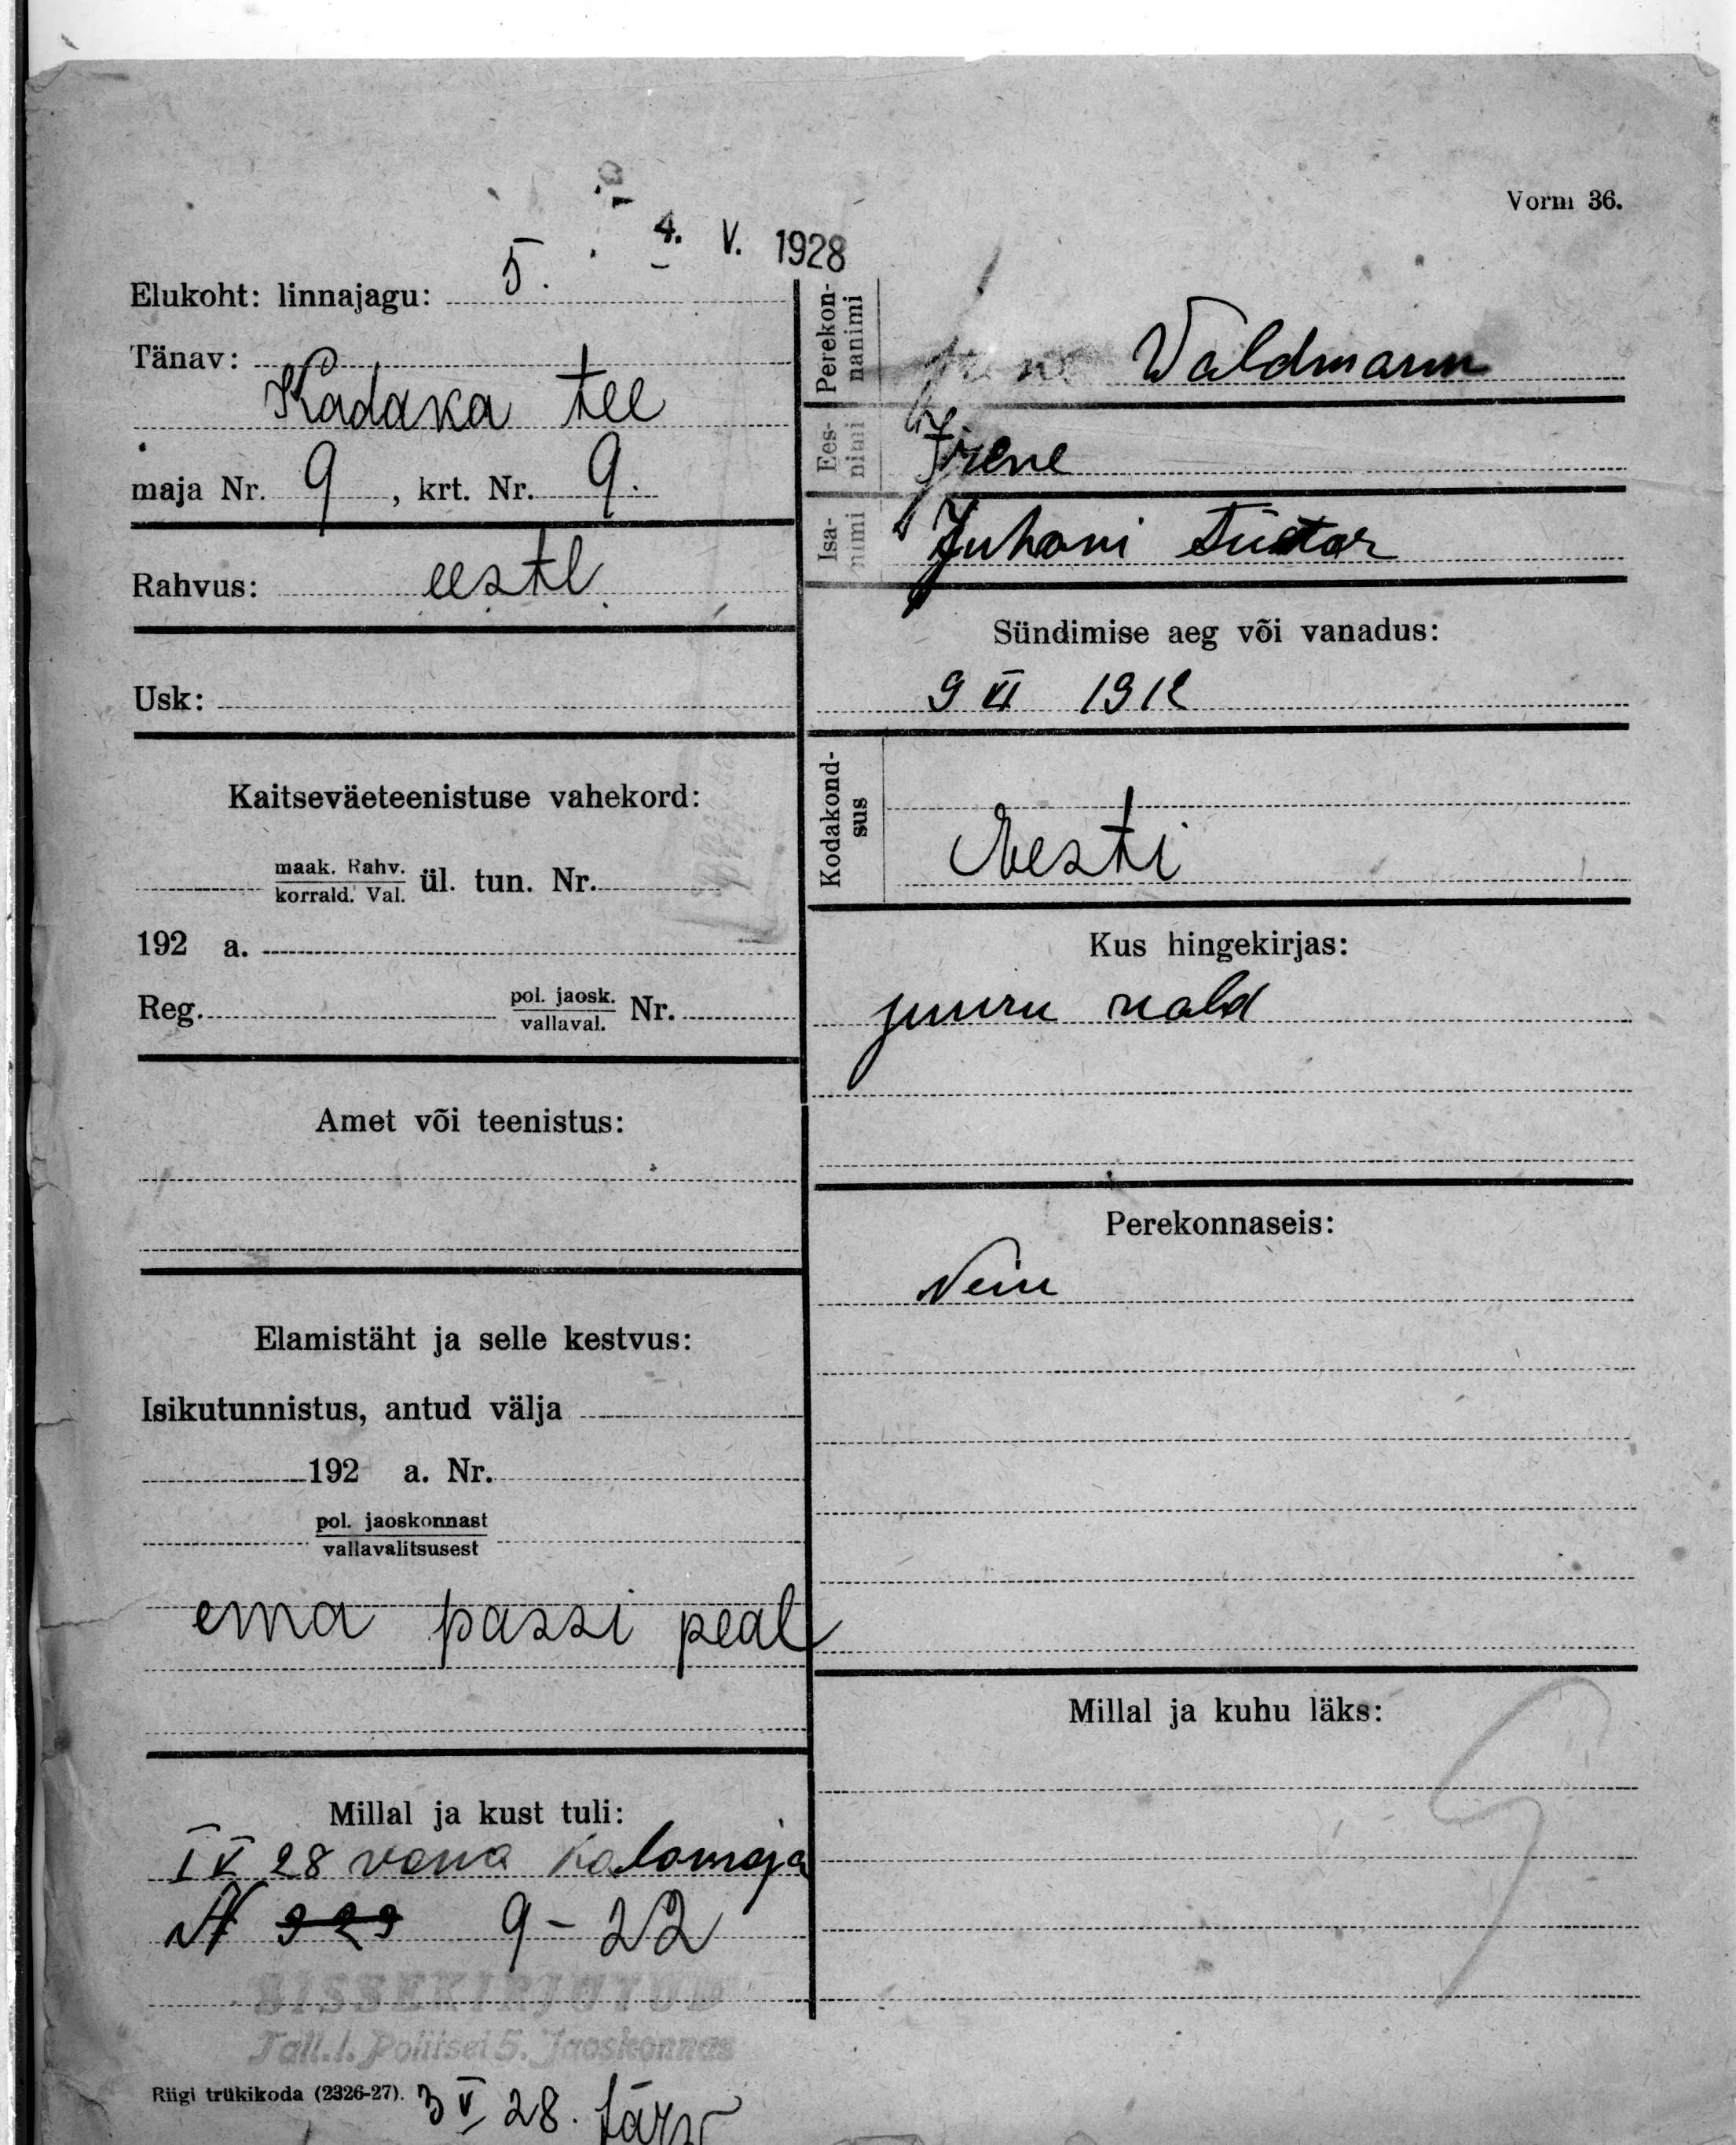 Vorm 36.
4. V. 1928
Elukoht: linnajagu: 5.
Tänav:
Kadaka tee
maja Nr. 9, krt. Nr. 9.
Rahvus: eestl.
Usk:
Kaitseväeteenistuse vahekord:
maak. Rahv.
korrald. Val.
ül. tun. Nr.
192 a.
Reg. pol. jaosk.
vallaval. Nr.
Amet või teenistus:
Elamistäht ja selle kestvus:
Isikutunnistus, antud välja
192 a. Nr.
pol. jaoskonnast
vallavalitsusest
ema passi peal
Millal ja kust tuli:
I V 28 vana Kalamaja
N 9 - 22
SISSEKIRJUTUD
Tall. l. Politsei 5. Jaoskonnas
Riigi trükikoda (2326-27).
3 V 28.
Perekon-
nanimi
Waldmann
Ees-
nimi
Irene
Isa-
nimi
Juhani tütar
Sündimise aeg või vanadus:
9 VI 1912
Kodakond-
sus
Eesti
Kus hingekirjas:
juuru vald
Perekonnaseis:
Neiu
Millal ja kuhu läks: